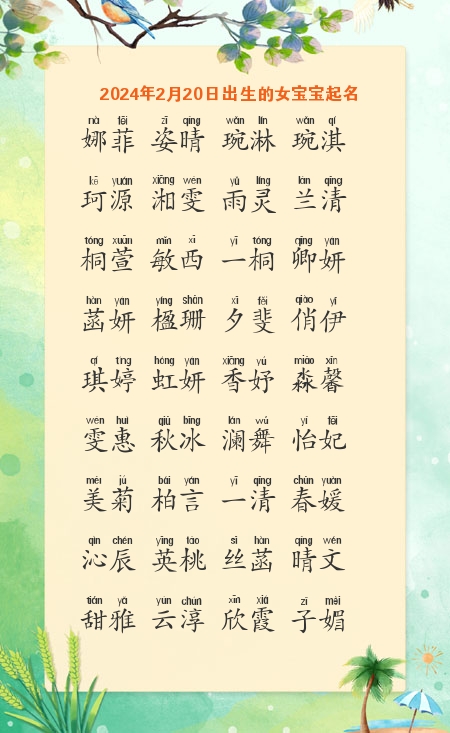 2024年2月20日出生的女宝宝起名
nà fēi zī qíng wǎn lín wǎn qí
娜菲 姿晴 琬淋 琬淇
kē yuán xiāng wén yǔ líng lán qīng
珂源 湘雯 雨灵 兰清
tóng xuān mǐn xī yī tóng qīng yán
桐萱 敏西 一桐 卿妍
hàn yán yíng shān xī fěi qiào yī
菡妍 楹珊 夕斐 俏伊
qí tíng hóng yán xiāng yú miǎo xīn
琪婷 虹妍 香妤 淼馨
wén huì qiū bīng lán wǔ yí fēi
雯惠 秋冰 澜舞 怡妃
měi jú bǎi yán yī qīng chūn yuán
美菊 柏言 一清 春媛
qìn chén yīng táo sī hàn qíng wén
沁辰 英桃 丝菡 晴文
tián yǎ yún chún xīn xiá zǐ mèi
甜雅 云淳 欣霞 子媚